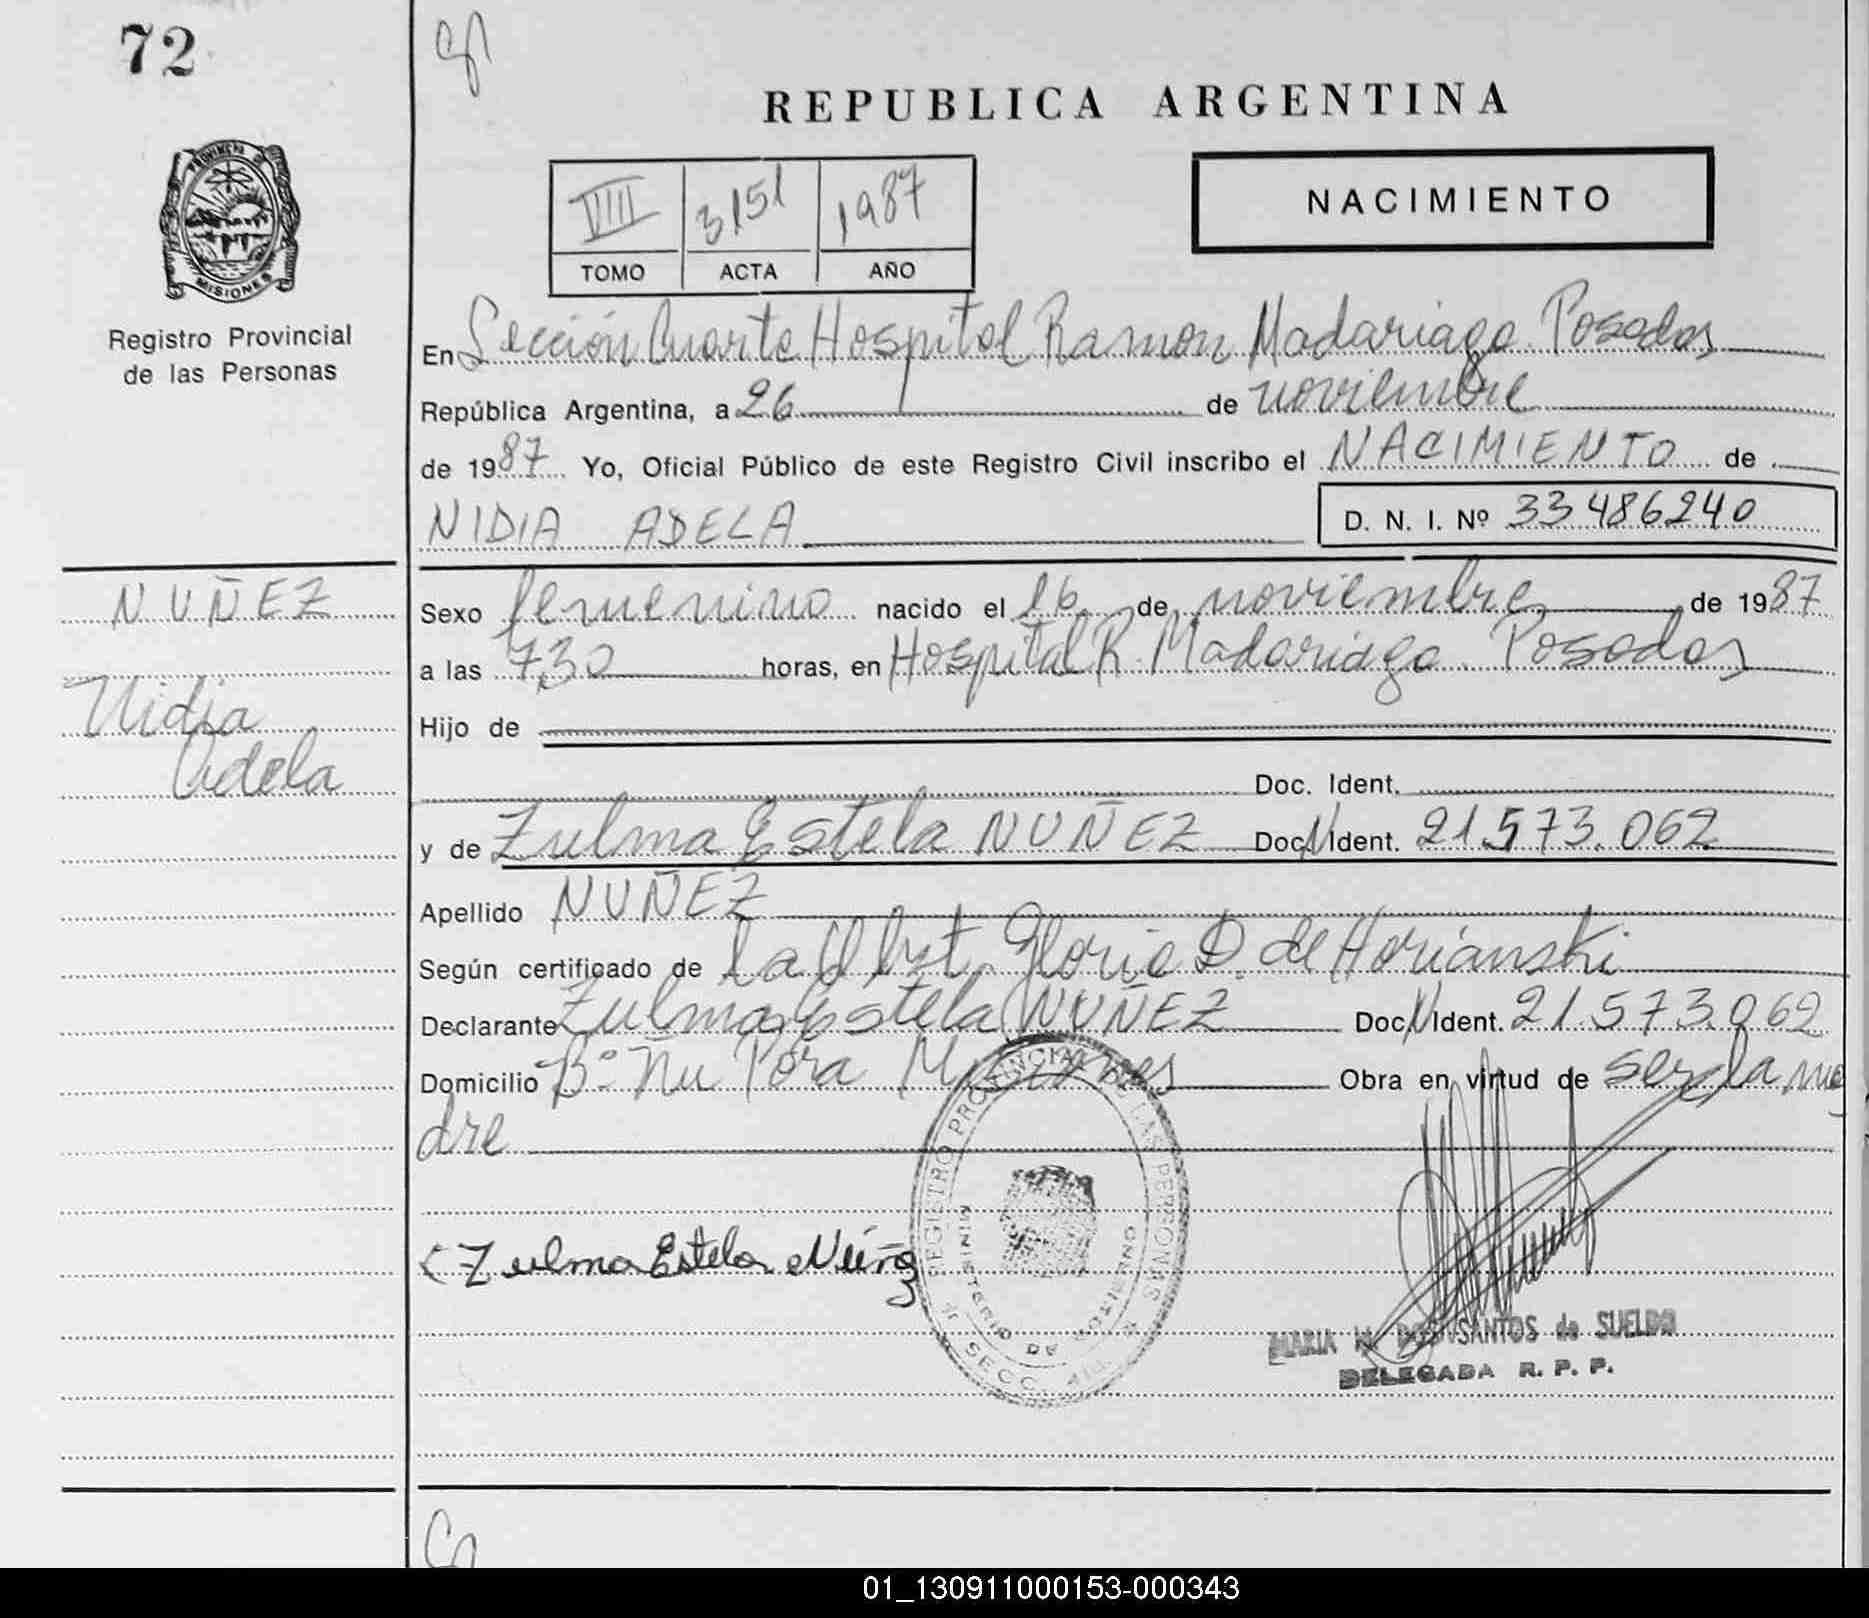 72
REPUBLICA ARGENTINA
PROVINCIA DE
MISIONES
Registro Provincial
de las Personas
VIII 3151 1987
TOMO ACTA AÑO
NACIMIENTO
En Sección Cuarta Hospital Ramon Madariaga. Posadas
República Argentina, a 26 de noviembre
de 1987 Yo, Oficial Público de este Registro Civil inscribo el NACIMIENTO de
NIDIA ADELA
D. N. I. Nº 33486240
NUÑEZ
Nidia
Adela
Sexo femenino nacido el 16 de noviembre de 1987
a las 7,30 horas, en Hospital R. Madariaga. Posadas
Hijo de
Doc. Ident.
y de Zulma Estela NUÑEZ Doc. N Ident. 21.573.062
Apellido NUÑEZ
Según certificado de la Obst. Gloria D. de Horianski
Declarante Zulma Estela NUÑEZ Doc. N Ident. 21.573.062
Domicilio Bº Ñu Pora Misiones Obra en virtud de ser la ma
dre
Zulma Estela Núñez
REGISTRO PROVINCIAL DE LAS PERSONAS
MINISTERIO DE
SECC. 4ta
MARIA DOS SANTOS de SUELDO
DELEGADA R. P. P.
01_130911000153-000343